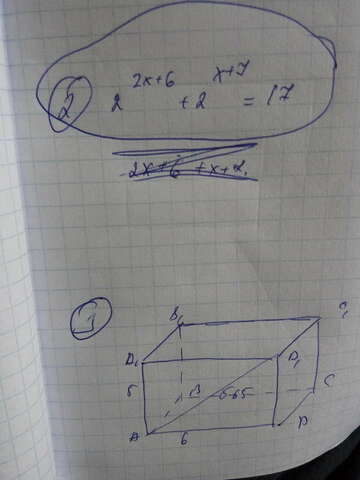 2 2^{2x+6} + 2^{x+7} = 17
2x+6 + x+7.
3
B₁ C₁
A₁ D₁
5 B 565 C
A 6 D